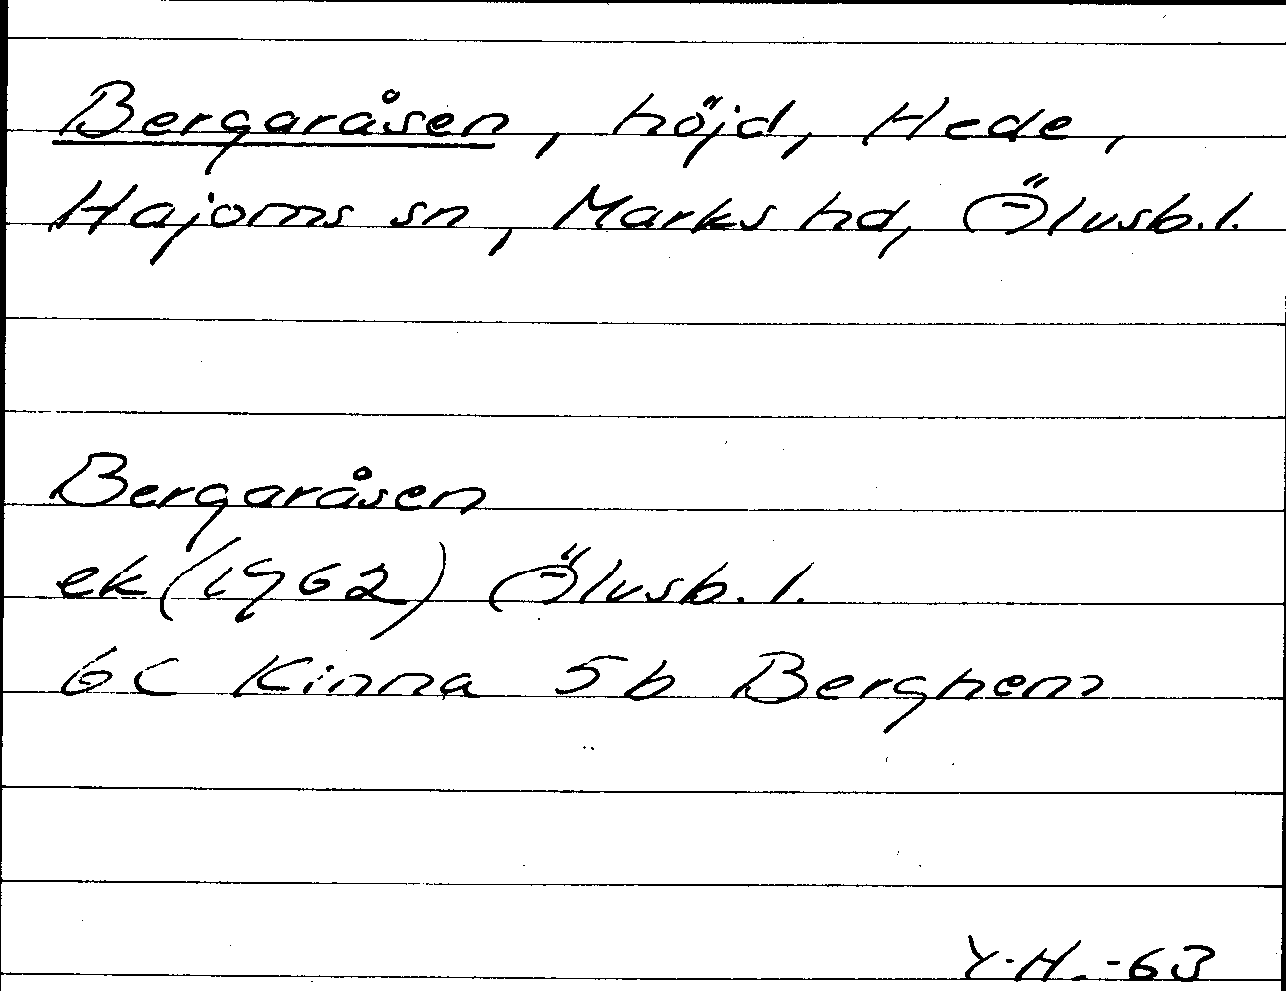 Bergaråsen, höjd, Hede,
Hajoms sn, Marks hd, Älvsb. l.
Bergaråsen
ek (1962) Älvsb. l.
6C Kinna 5b Berghem
Y.H. -63